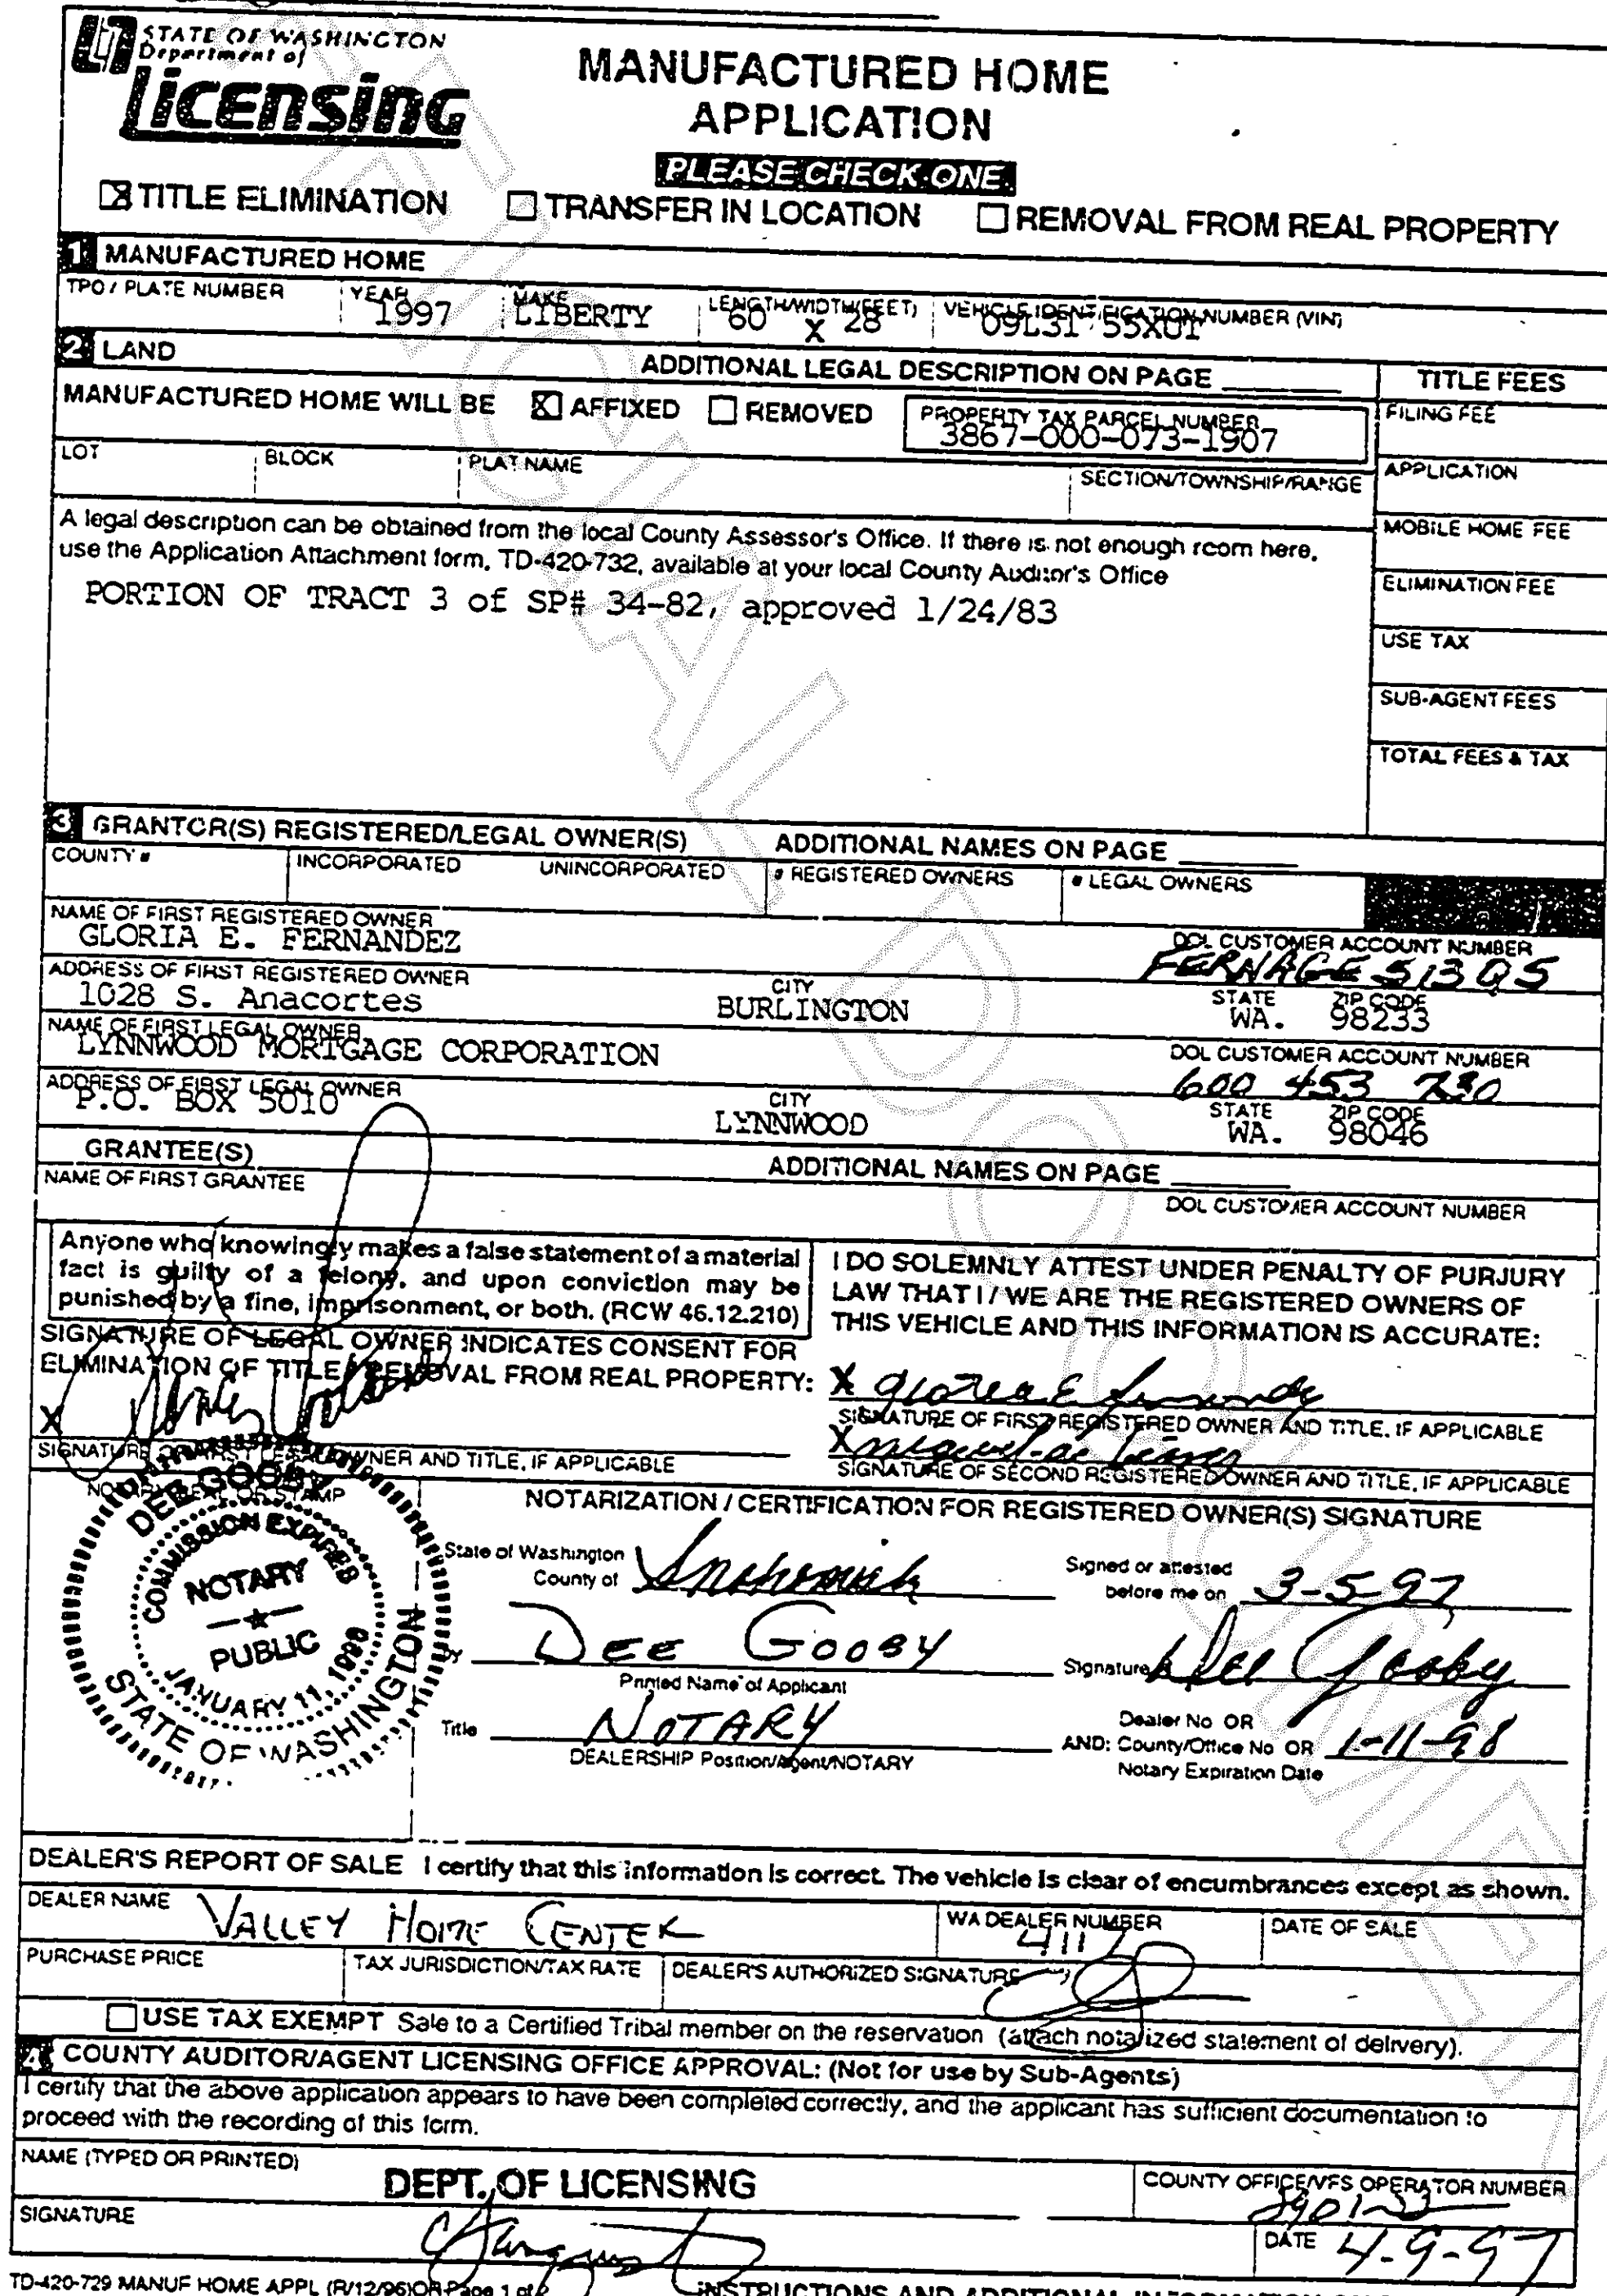 STATE OF WASHINGTON
Department of
Licensing
MANUFACTURED HOME
APPLICATION
PLEASE CHECK ONE
TITLE ELIMINATION TRANSFER IN LOCATION REMOVAL FROM REAL PROPERTY
1 MANUFACTURED HOME
TPO / PLATE NUMBER YEAR MAKE LENGTH/WIDTH(FEET) VEHICLE IDENTIFICATION NUMBER (VIN)
1997 LIBERTY 60 X 28 09L31 55XUT
2 LAND ADDITIONAL LEGAL DESCRIPTION ON PAGE
TITLE FEES
MANUFACTURED HOME WILL BE AFFIXED REMOVED PROPERTY TAX PARCEL NUMBER
3867-000-073-1907
FILING FEE
LOT BLOCK PLAT NAME SECTION/TOWNSHIP/RANGE
APPLICATION
A legal description can be obtained from the local County Assessor's Office. If there is not enough room here,
use the Application Attachment form, TD-420-732, available at your local County Auditor's Office
MOBILE HOME FEE
PORTION OF TRACT 3 of SP# 34-82, approved 1/24/83
ELIMINATION FEE
USE TAX
SUB-AGENT FEES
TOTAL FEES & TAX
3 GRANTOR(S) REGISTERED/LEGAL OWNER(S) ADDITIONAL NAMES ON PAGE
COUNTY # INCORPORATED UNINCORPORATED # REGISTERED OWNERS # LEGAL OWNERS
NAME OF FIRST REGISTERED OWNER DOL CUSTOMER ACCOUNT NUMBER
GLORIA E. FERNANDEZ FERNAGE513QS
ADDRESS OF FIRST REGISTERED OWNER CITY STATE ZIP CODE
1028 S. Anacortes BURLINGTON WA. 98233
NAME OF FIRST LEGAL OWNER DOL CUSTOMER ACCOUNT NUMBER
LYNNWOOD MORTGAGE CORPORATION 600 453 230
ADDRESS OF FIRST LEGAL OWNER CITY STATE ZIP CODE
P.O. BOX 5010 LYNNWOOD WA. 98046
GRANTEE(S) ADDITIONAL NAMES ON PAGE
NAME OF FIRST GRANTEE DOL CUSTOMER ACCOUNT NUMBER
Anyone who knowingly makes a false statement of a material
fact is guilty of a felony, and upon conviction may be
punished by a fine, imprisonment, or both. (RCW 46.12.210)
I DO SOLEMNLY ATTEST UNDER PENALTY OF PURJURY
LAW THAT I / WE ARE THE REGISTERED OWNERS OF
THIS VEHICLE AND THIS INFORMATION IS ACCURATE:
SIGNATURE OF LEGAL OWNER INDICATES CONSENT FOR
ELIMINATION OF TITLE / REMOVAL FROM REAL PROPERTY:
X
SIGNATURE OF FIRST LEGAL OWNER AND TITLE, IF APPLICABLE
X Gloria E Fernandez
SIGNATURE OF FIRST REGISTERED OWNER AND TITLE, IF APPLICABLE
X
SIGNATURE OF SECOND REGISTERED OWNER AND TITLE, IF APPLICABLE
NOTARY SEAL OR STAMP
DEE GOOBY
COMMISSION EXPIRES
NOTARY
PUBLIC
JANUARY 11, 1998
STATE OF WASHINGTON
NOTARIZATION / CERTIFICATION FOR REGISTERED OWNER(S) SIGNATURE
State of Washington
County of Snohomish Signed or attested before me on 3-5-97
By DEE GOOBY Signature Dee Gooby
Printed Name of Applicant
Title NOTARY
DEALERSHIP Position/Agent/NOTARY
AND: Dealer No OR County/Office No OR Notary Expiration Date 1-11-98
DEALER'S REPORT OF SALE I certify that this information is correct. The vehicle is clear of encumbrances except as shown.
DEALER NAME VALLEY HOME CENTER WA DEALER NUMBER 4117 DATE OF SALE
PURCHASE PRICE TAX JURISDICTION/TAX RATE DEALER'S AUTHORIZED SIGNATURE
USE TAX EXEMPT Sale to a Certified Tribal member on the reservation (attach notarized statement of delivery).
4 COUNTY AUDITOR/AGENT LICENSING OFFICE APPROVAL: (Not for use by Sub-Agents)
I certify that the above application appears to have been completed correctly, and the applicant has sufficient documentation to
proceed with the recording of this form.
NAME (TYPED OR PRINTED) DEPT. OF LICENSING COUNTY OFFICE/VFS OPERATOR NUMBER
SIGNATURE DATE 4-9-97
TD-420-729 MANUF HOME APPL (R/12/96)OR Page 1 of 2 INSTRUCTIONS AND ADDITIONAL INFORMATION ON
UNOFFICIAL DOCUMENT